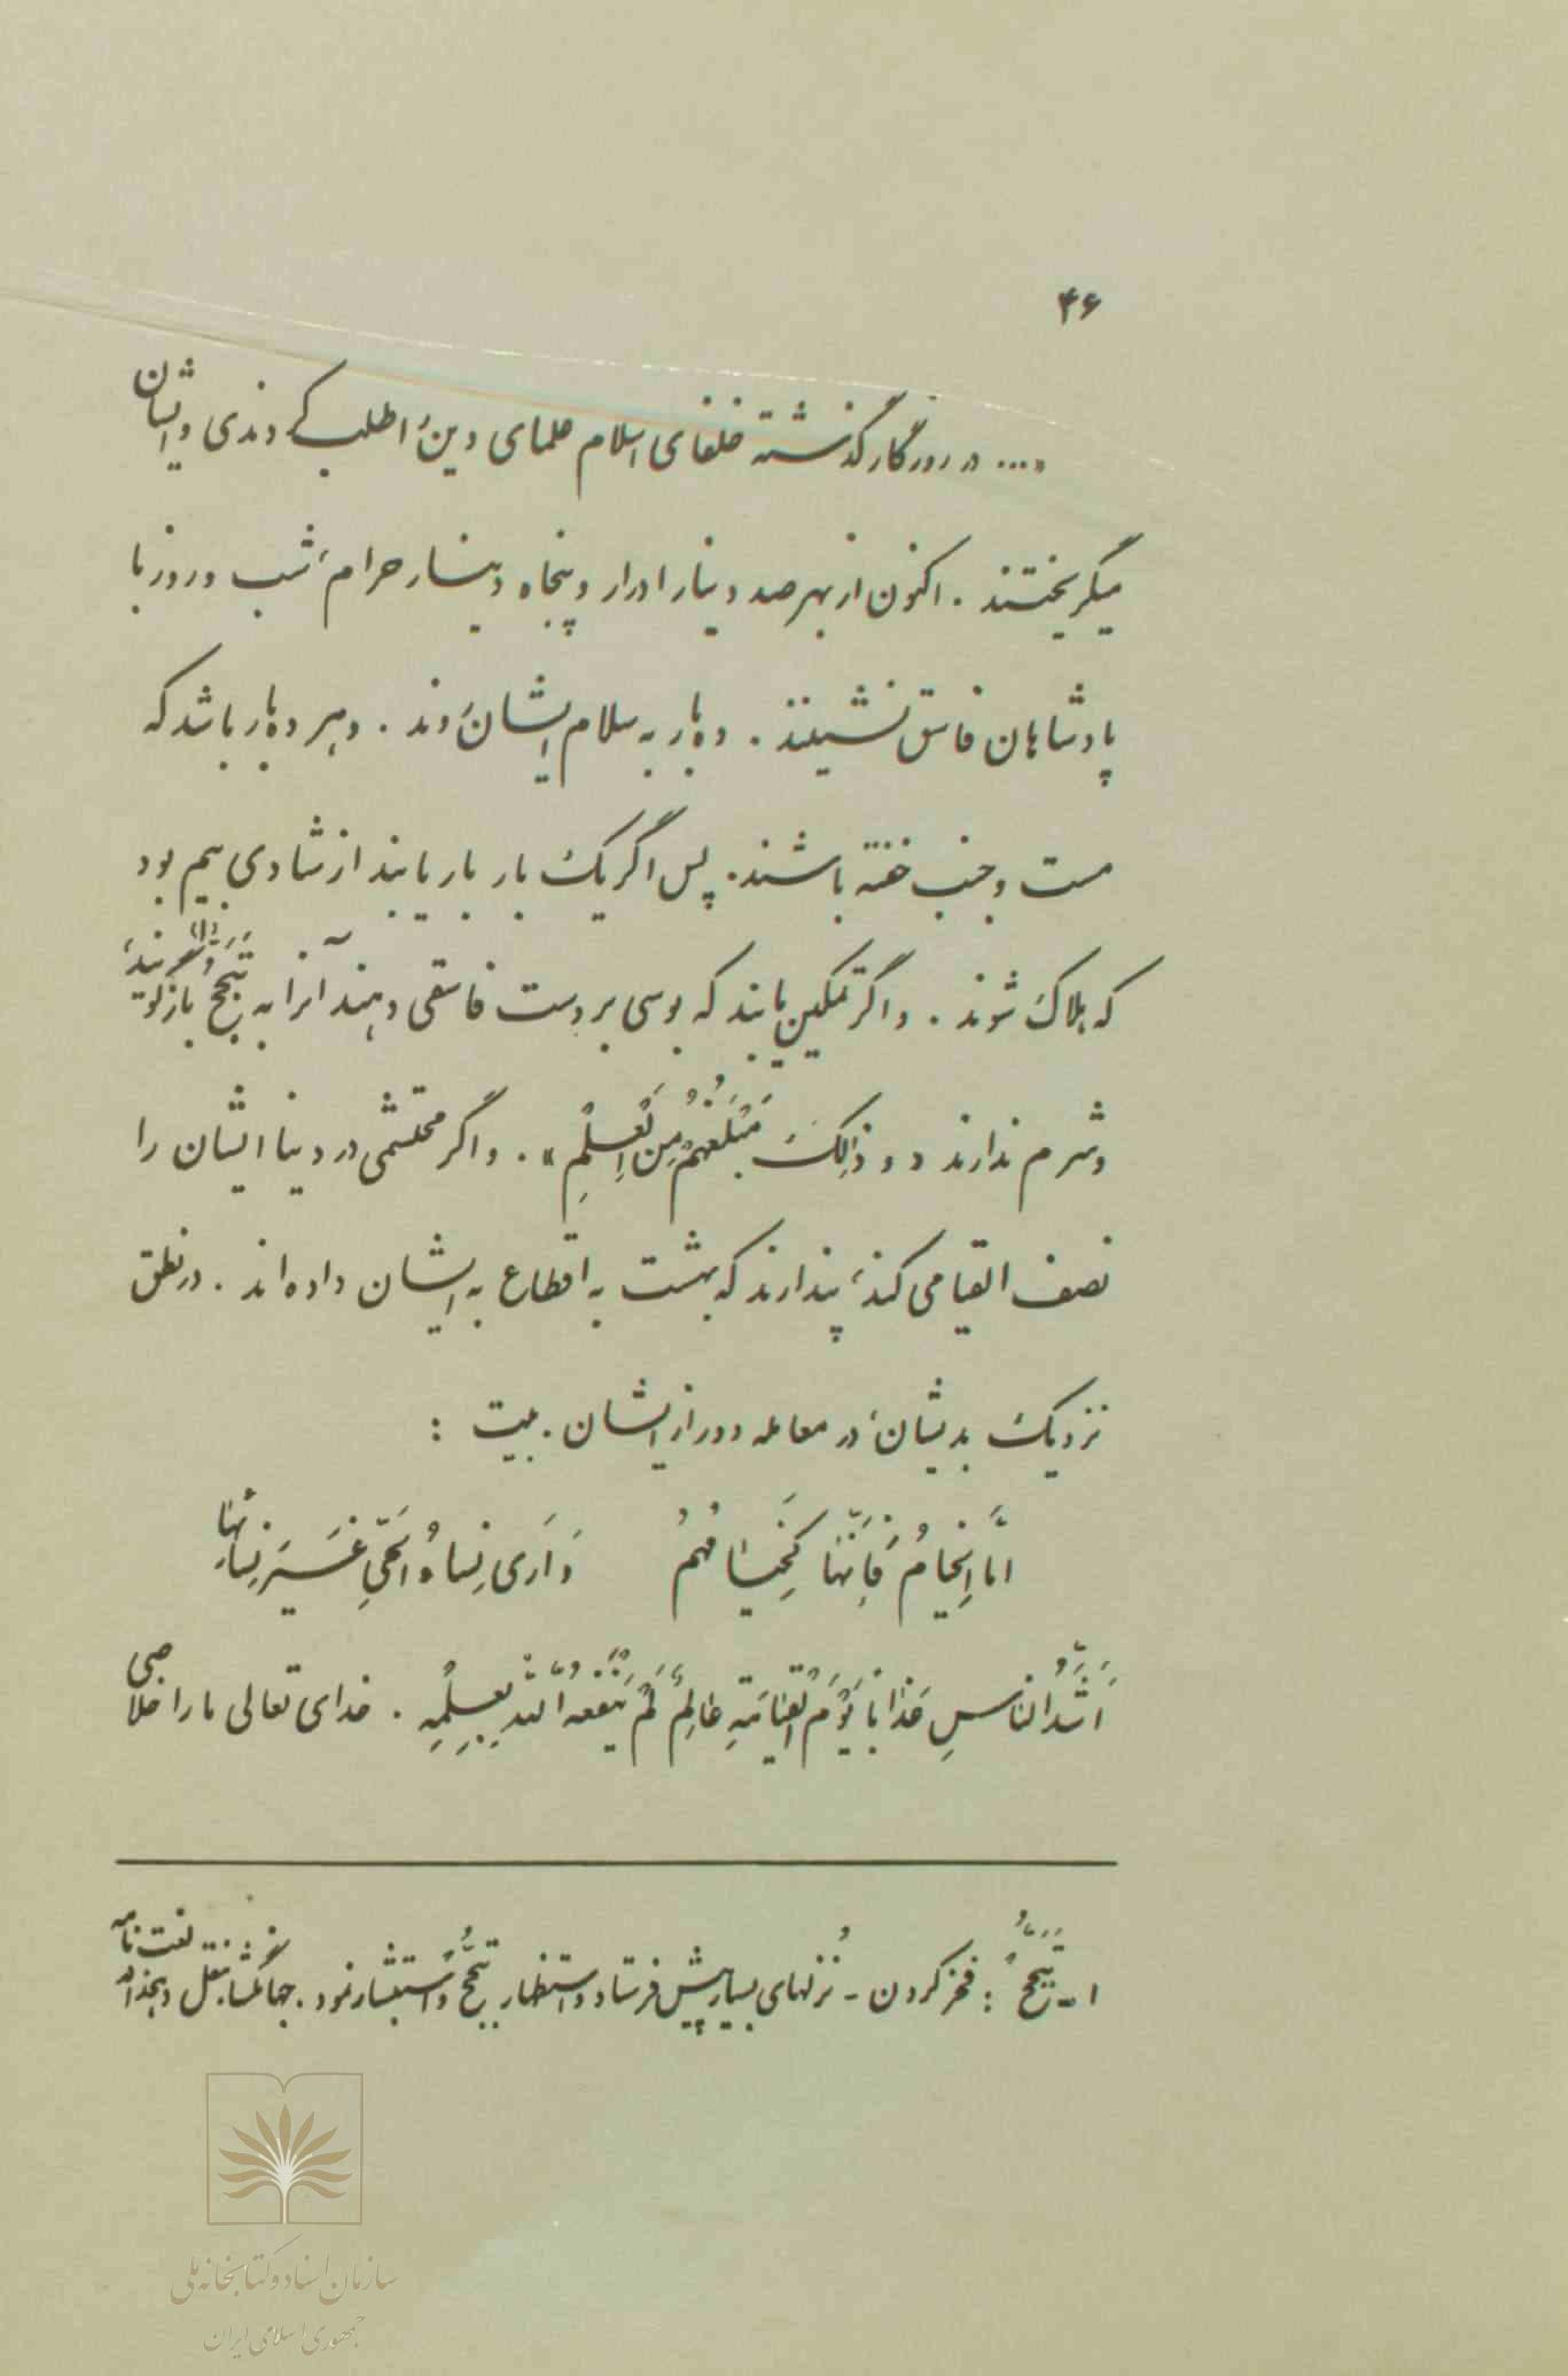 ۴۶
«... در روزگار گذشته خلفای اسلام علمای دین را طلب کردندی و ایشان
میگریختند . اکنون از بهر صد دینار ادرار و پنجاه دینار حرام، شب و روز با
پادشاهان فاسق نشینند . ده بار به سلام ایشان روند . و هر ده بار باشد که
مست و جنب خفته باشند. پس اگر یک بار بار یابند از شادی بیم بود
که هلاک شوند . و اگر تمکین یابند که بوسی بر دست فاسقی دهند آنرا به تَبَجُّح(۱) بازگویند،
و شرم ندارند « و ذٰلِکَ مَبْلَغُهُمْ مِنَ الْعِلْمِ » . و اگر محتشمی در دنیا ایشان را
نصف القیامی کند، پندارند که بهشت به اقطاع به ایشان داده‌اند . در نطق
نزدیک بدیشان، در معامله دور از ایشان . بیت :
اَمَّا الْخِیامُ فَاِنَّهٰا کَخِیٰامُهُمُ وَ اَریٰ نِساءُ الْحَیِّ غَیْرَ نِسٰائِهٰا
اَشَدُّ النّاسِ عَذٰاباً یَوْمَ الْقِیٰامَةِ عٰالِمٌ لَمْ یَنْفَعْهُ اللّٰهُ بِعِلْمِهِ . خدای تعالی ما را خلاصی
۱ - تَبَجُّحْ : فخر کردن - نُزلهای بسیار پیش فرستاد و استظهار و تَبَجُّح و استبشار نمود . جهانگشا بنقل دهخدا، لغت نامه
سازمان اسناد و کتابخانه ملی
جمهوری اسلامی ایران